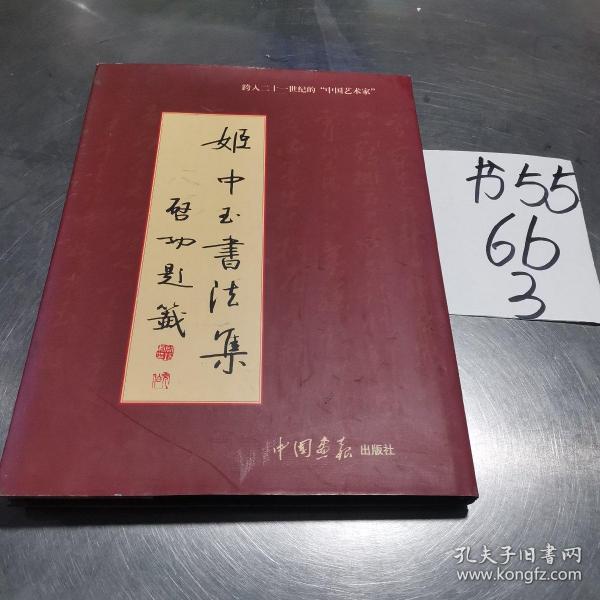 跨入二十一世纪的“中国艺术家”
姬中玉書法集
啓功題籤
中国画报 出版社
书55
6b
3
孔夫子旧书网
www.kongfz.com